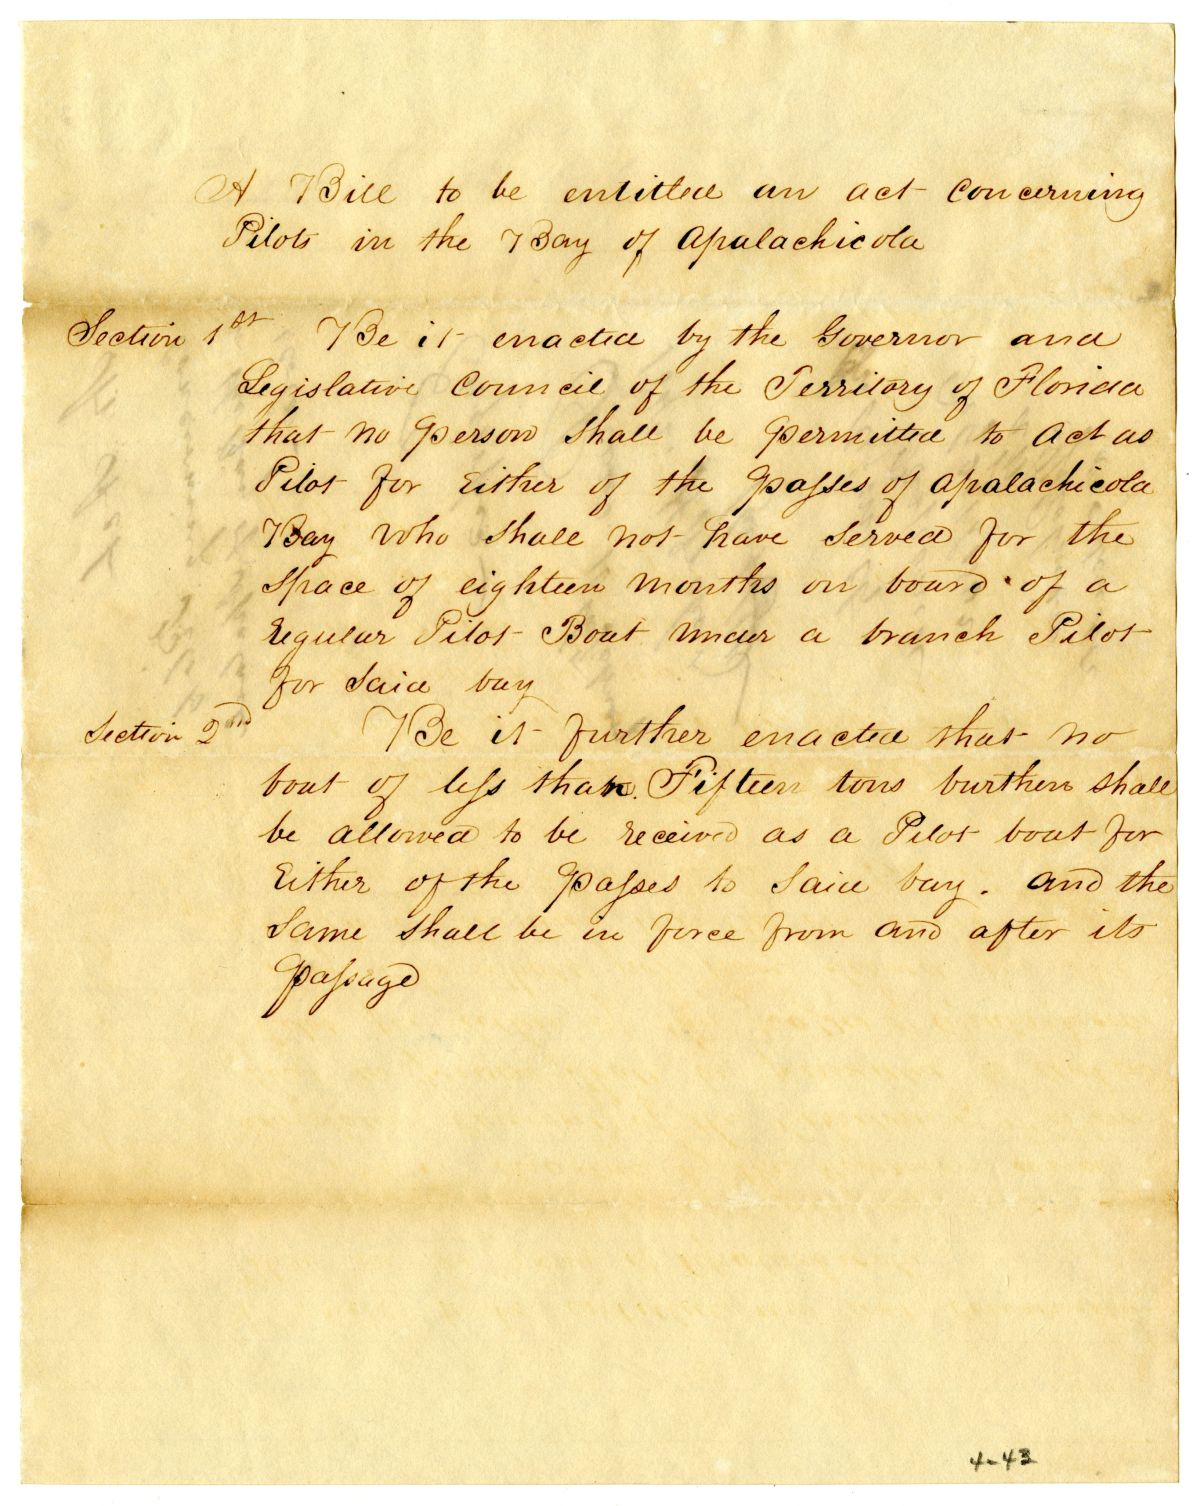 A Bill to be entitled an act concerning
Pilots in the Bay of Apalachicola
Section 1st Be it enacted by the Governor and
Legislative Council of the Territory of Florida
that no person shall be permitted to act as
Pilot for Either of the passes of Apalachicola
Bay who shall not have served for the
space of eighteen months on board of a
regular Pilot Boat under a branch Pilot
for said bay
Section 2nd Be it further enacted that no
boat of less than Fifteen tons burthen shall
be allowed to be received as a Pilot boat for
Either of the passes to said bay. and the
same shall be in force from and after its
passage
4-43